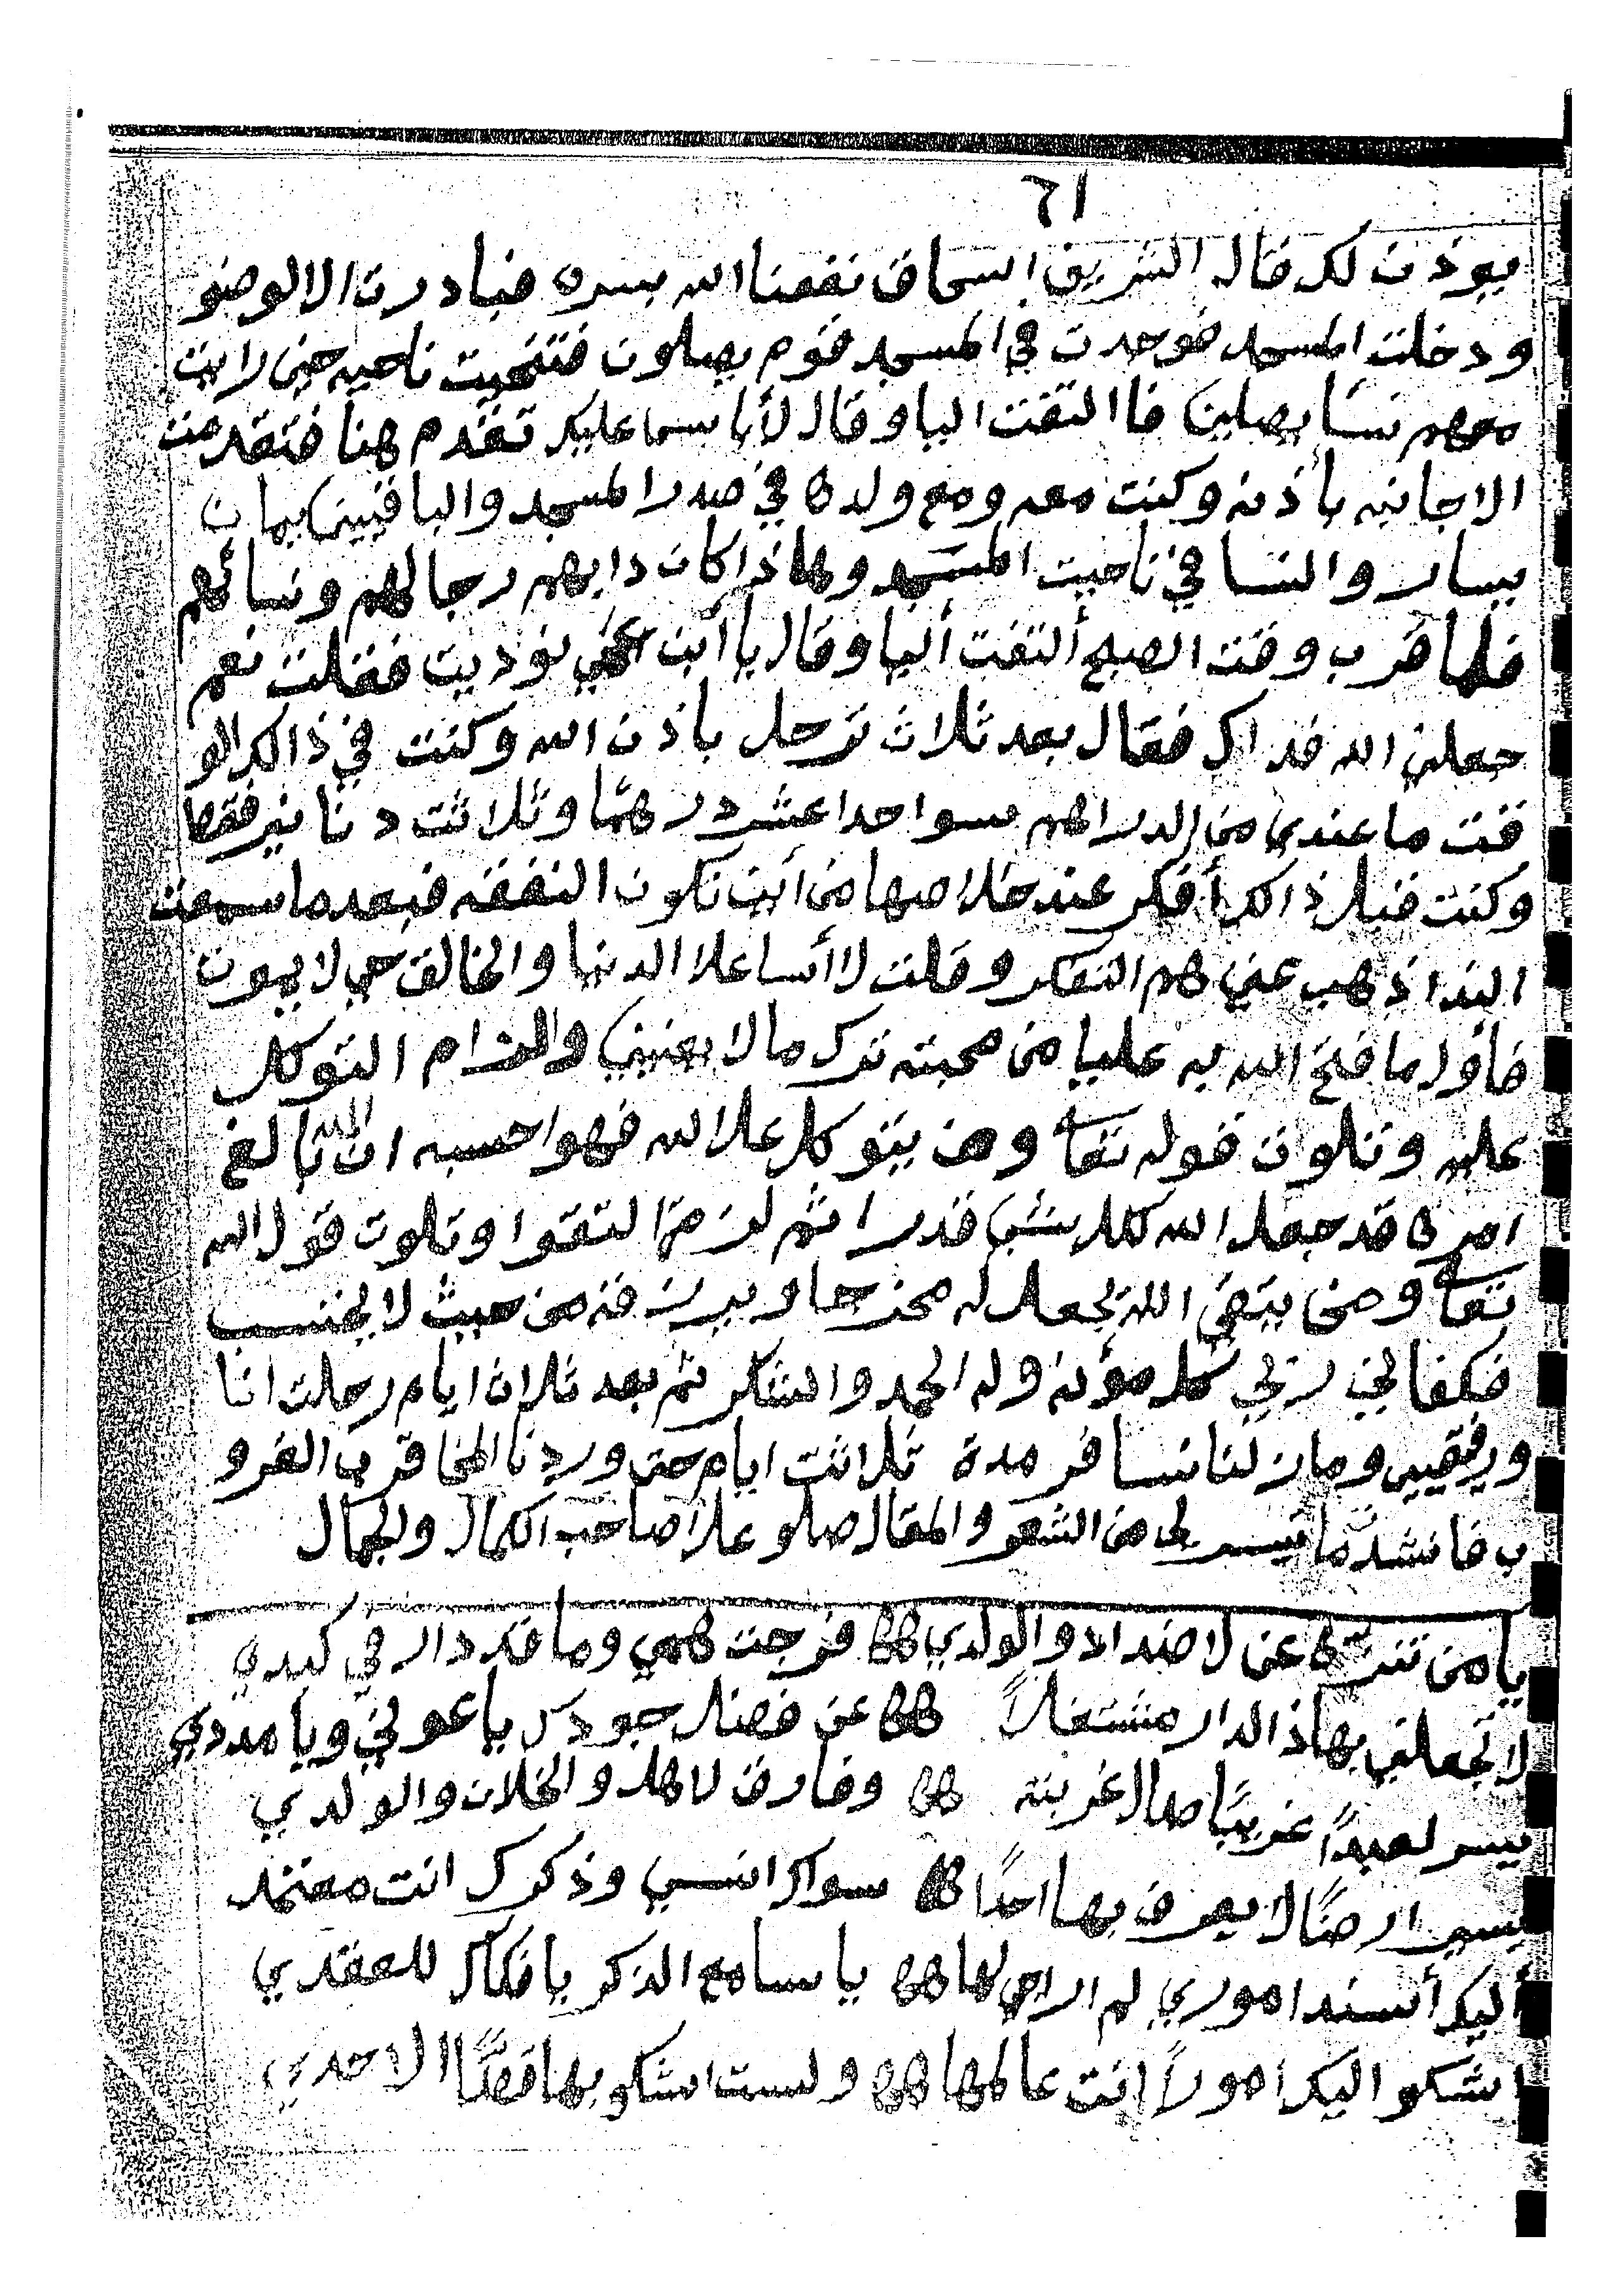 ٦١
يوذن لك قال الشريف اسحاق نفعنا الله بسره فبادرت الا الوضو
ودخلت المسجد فوجدت في المسجد قوم يصلون فتنحيت ناحيه حين رايت
معهم نسًا يصلين فا التفت اليا وقال لأبا سما عليك تقدم هنا فتقدمت
الا جانبه بأذنه وكنت معه ومع ولده في صدر المسجد والباقيين يمان
يسار والنسا في ناحيت المسجد ولهاذا كان دابهم رجالهم ونسائهم
فلما قرب وقت الصبح ألتفت أليا وقال يا أبن عمي نوديت فقلت نعم
جعلني الله فداك فقال بعد ثلاث ترحل باذن الله وكنت في ذالك الو
قت ما عندي من الدراهم سوا احدا عشر درهمًا وثلاثت دنانير فقط
وكنت قبل ذالك أفكر عند خلاصها من أين تكون النفقه فبعد ما سمعت
الندا ذهب عني هم التفكر وقلت لا أسا علا الدنيا والخالق حي لا يموت
فأول ما فتح الله به عليا من محبته ترك ما لا يعنيني والتزام التوكل
عليه وتلوت قوله تعا ومن يتوكل علا الله فهوا حسبه ان الله بالغ
امره قد جعل الله لكل شي قدرا ثم لزمة التقوا وتلوت قول الله
تعا ومن يتقي الله يجعل له مخرجا ويرزقه من حيث لا يحتسب
فكفاني ربي كل مؤنه وله الحمد والشكر ثم بعد ثلاث ايام رحلت انا
ورفقيي ومازلنا نسافر مدة ثلاثت ايام حتى وردنا المخا قرب الغرو
ب فانشد ما تيسر لي من الشعر والمقال صلو علا صاحب الكمال والجمال
يا من تنزه عن لاضداد والولدي فرجت همي وما قد دار في كبدي
لا تجعلني بهاذ الدار مشتغلاً عن فضل جودك يا عوني ويا مددي
يسر لعبدًا غريبًا طال غربته وفارق لاهل والخلان والولدي
يسير ارضًا لا يعرف بها احدًا سواك انسي وذكرك انت معتمد
أليك أسند اموري لم اراجي لها يا سامع الذكر يا فكاك للعقدي
اشكو اليك امورًا انت عالمها ولست اشكو بها قصًا الا حدي